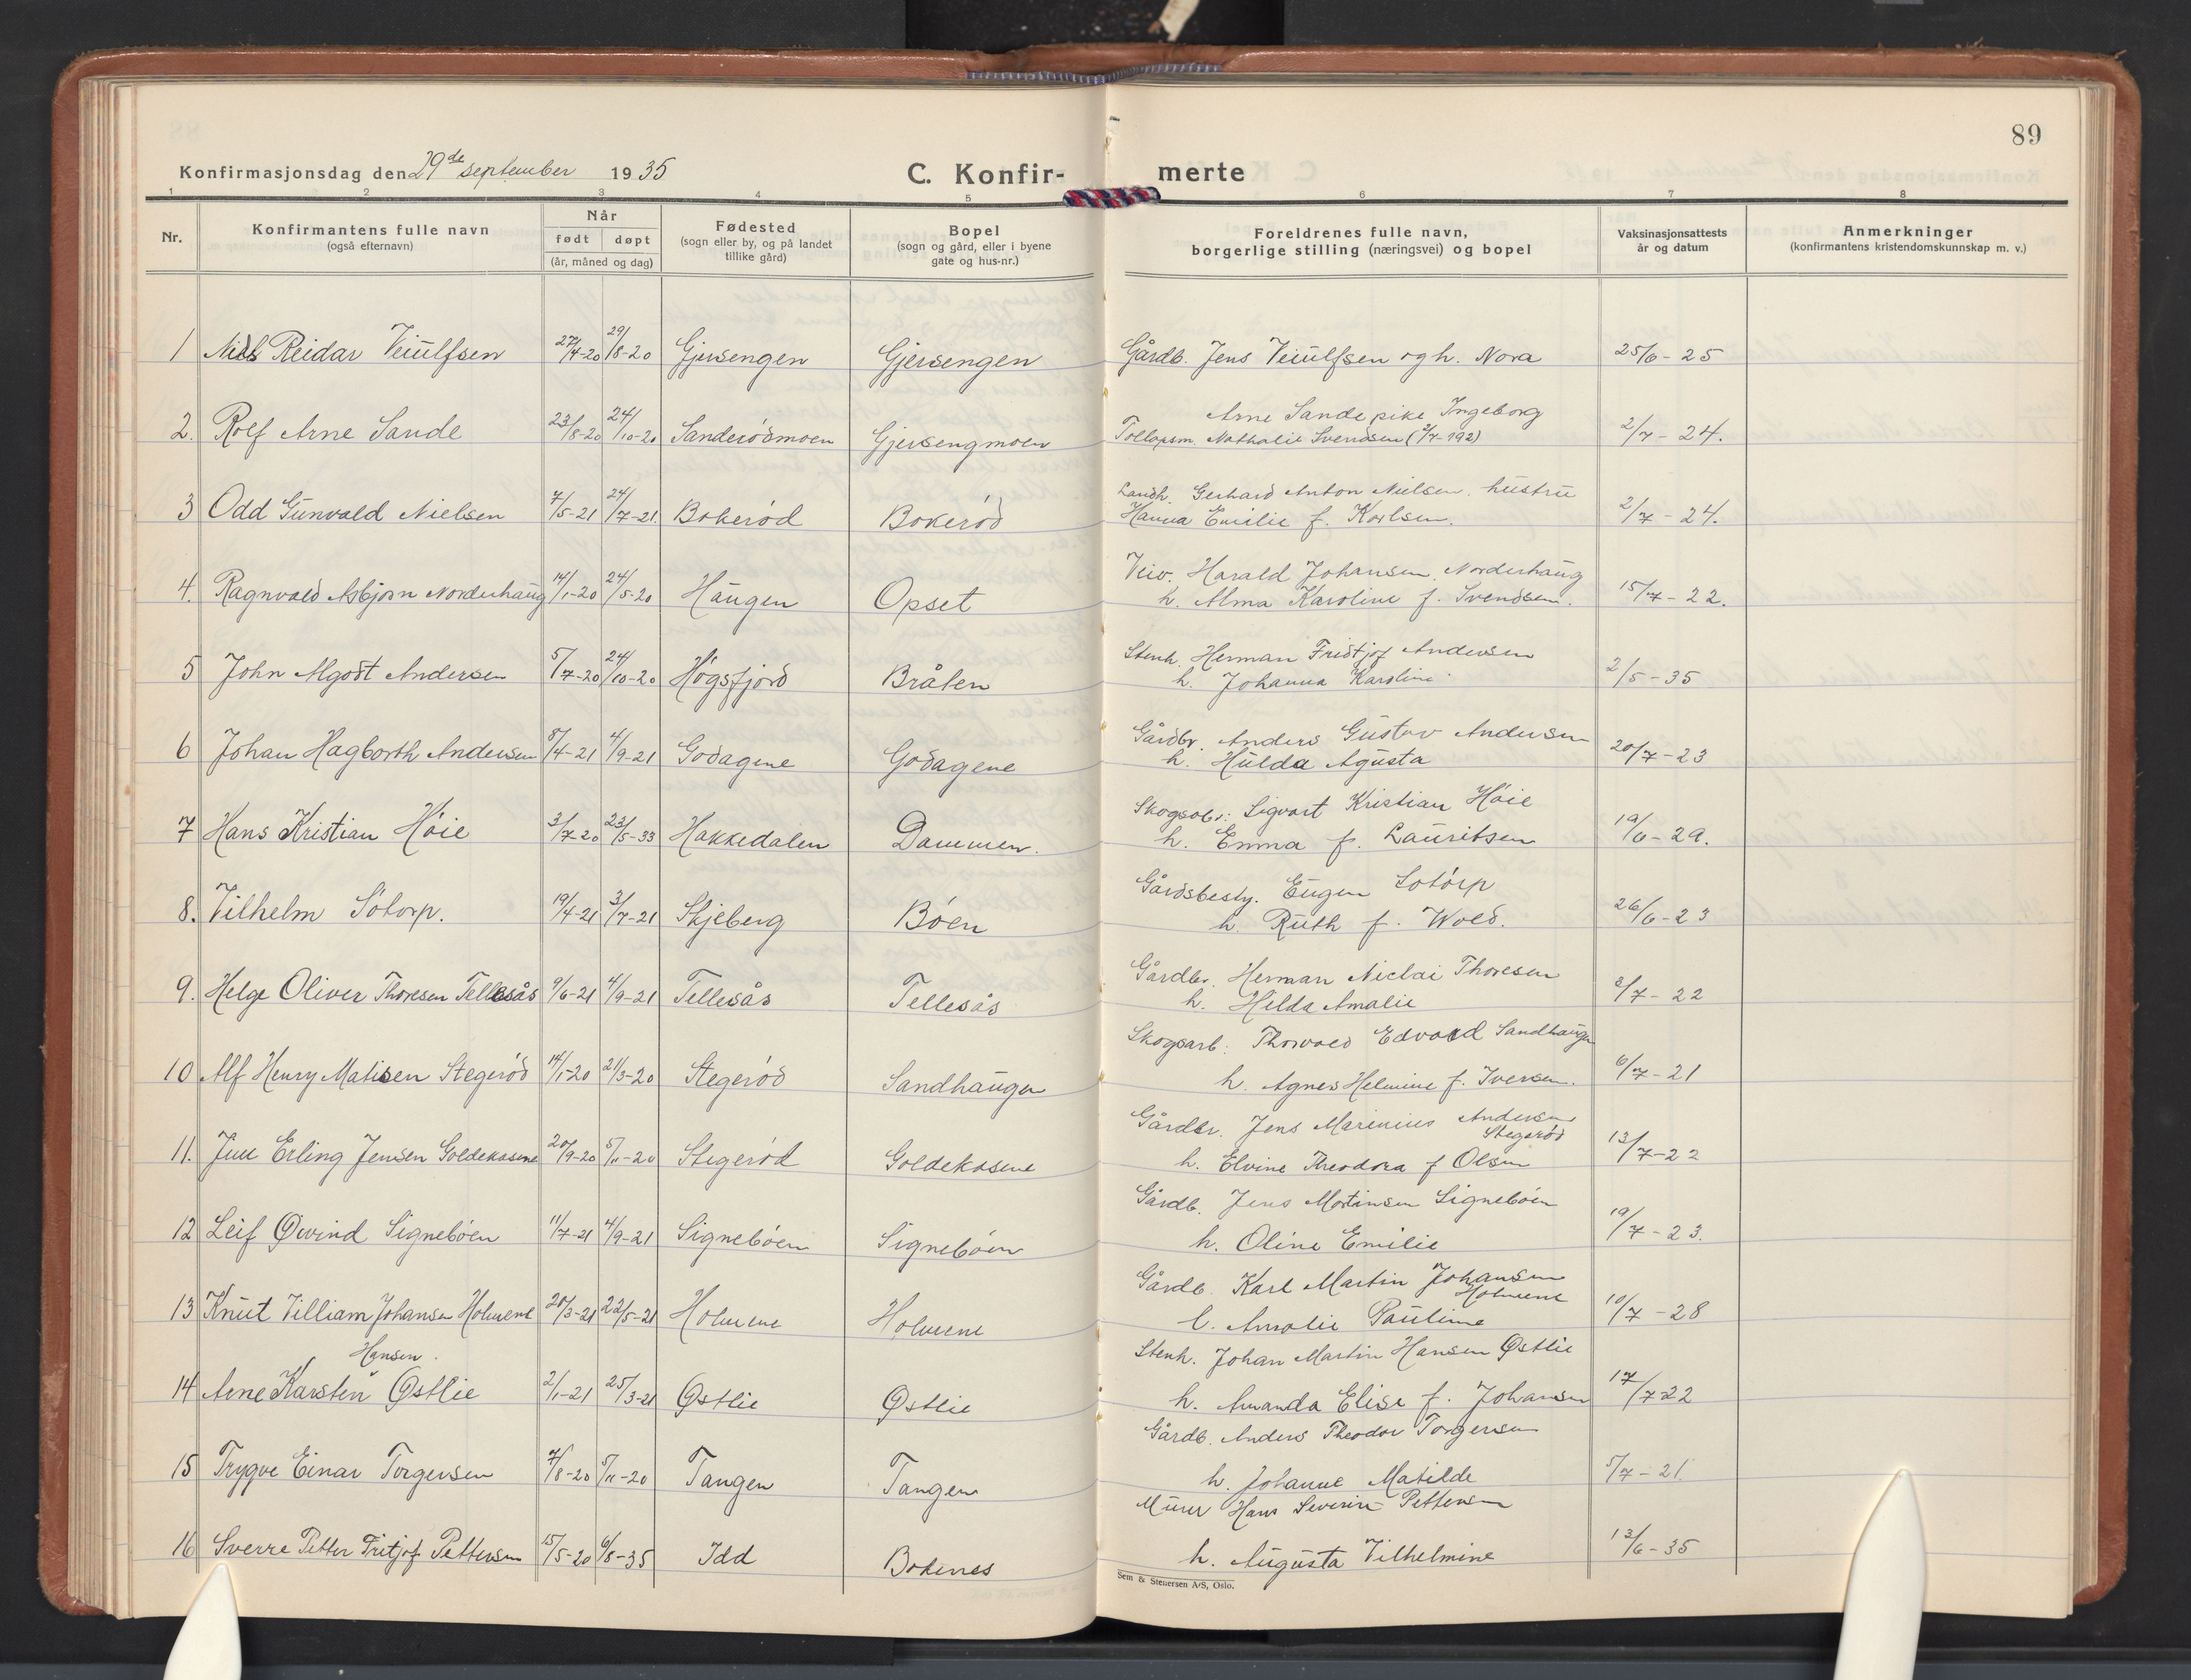 89
Konfirmasjonsdag den 29de september 1935
C. Konfir-
merte
1 2 3 4 5 6 7 8
Nr.
Konfirmantens fulle navn
(også efternavn)
Når
født døpt
(år, måned og dag)
Fødested
(sogn eller by, og på landet
tillike gård)
Bopel
(sogn og gård, eller i byene
gate og hus-nr.)
Foreldrenes fulle navn,
borgerlige stilling (næringsvei) og bopel
Vaksinasjonsattests
år og datum
Anmerkninger
(konfirmantens kristendomskunnskap m. v.)
1 Nils Reidar Veiulfsen 27/4-20 29/8-20 Gjersengen Gjersengen Gårdb. Jens Veiulfsen og h. Nora 25/6-25
2. Rolf Arne Sande 23/8-20 24/10-20 Sanderödmoen Gjersengmoen
Arne Sande pike Ingeborg
Tollopsm. Nathalie Svendsen (2/7-192) 2/7-24.
3 Odd Gunvald Nielsen 7/5-21 24/7-21 Bokeröd Bokeröd
Landh. Gerhard Anton Nielsen. hustru
Hanna Emilie f. Karlsen. 2/7-24.
4. Ragnvald Asbjørn Norderhaug 14/1-20 24/5-20 Haugen Opset
Veiv. Harald Johansen Norderhaug
h. Alma Karoline f. Svendsen. 15/7-22.
5 John Algodt Andersen 5/7-20 24/10-20 Högsfjord Bråten
Stenh. Herman Fridtjof Andersen
h. Johanna Karoline 2/5-35
6 Johan Hagborth Andersen 8/4-21 4/9-21 Godagene Godagene
Gårdbr. Anders Gustav Andersen
h. Hulda Agusta 20/7-23
7 Hans Kristian Höie 3/7-20 23/5-33 Hakkedalen Dammen.
Sigvart Kristian Höie
h. Emma f. Lauritsen 19/6-29.
8. Vilhelm Sötorp. 19/4-21 3/7-21 Skjeberg Böen
Gårdsbesty. Eugen Sotörp
h. Ruth f. Wold. 26/6-23
9. Helge Oliver Thoresen Tellesås 9/6-21 4/9-21 Tellesås Tellesås
Gårdbr. Herman Niclai Thoresen
h. Hilda Amalie 3/7-22
10 Alf Henry Matisen Stegeröd 14/1-20 21/3-20 Stegeröd Sandhaugen
Skogsarb. Thorvald Edvard Sandhaugen
h. Agnes Helmine f. Iversen. 6/7-21
11. Juul Erling Jensen Goldekasene 20/9-20 5/11-20 Stegeröd Goldekasene
Gårdbr. Jens Marinius Andersen
Stegeröd
h. Elvine Theodora f Olsen 13/7-22
12 Leif Øivind Signeböen 11/7-21 4/9-21 Signeböen Signeböen
Gårdb. Jens Martinsen Signeböen
h. Oline Emilie 19/7-23.
13 Knut Villiam Johansen Holmene 20/3-21 22/5-21 Holmene Holmene
Gårdb. Karl Martin Johansen
Holmene
h. Amalie Pauline 10/7-28
Hansen.
14 Arne Karsten Østlie 2/1-21 25/3-21 Østlie Østlie
Stenh. Johan Martin Hansen Østlie
h. Amanda Elise f. Johansen 17/7-22
15 Trygve Einar Torgersen 7/8-20 5/11-20 Tangen Tangen
Gårdb. Anders Theodor Torgersen
h. Johanne Matilde 5/7-21.
16 Sverre Petter Fritjof Pettersen 15/5-20 6/8-35 Idd Bokenes
Murer Hans Severin Pettersen
h. Augusta Vilhelmine 13/6-35
Sem & Stenersen A/S, Oslo.